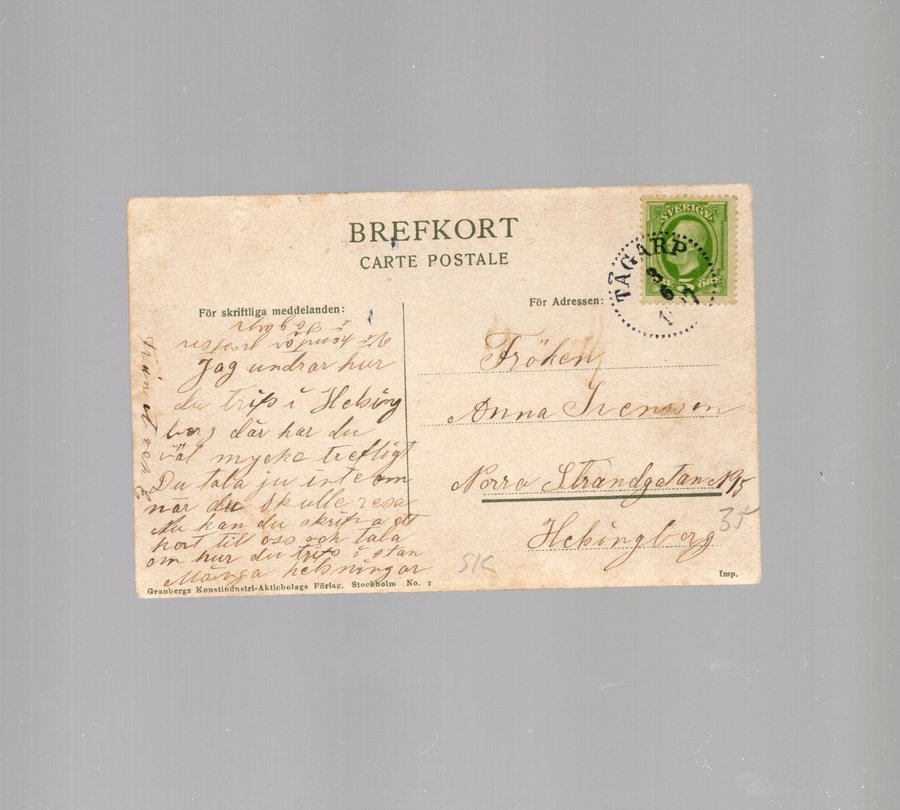 BREFKORT
CARTE POSTALE
SVERIGE
5
ÖRE
TÅGARP
För skriftliga meddelanden:
För Adressen:
Jag undrar hur
du trifs i Helsing
borg där har du
väl mycke trefligt
Du tala ju inte om
när du skulle resa
Nu kan du skrifva ett
kort till oss och tala
om hur du trifs i stan
Många helsningar
från
Fröken
Anna Svensson
Norra Strandgatan N95
Helsingborg
35
SK
Granbergs Konstindustri-Aktiebolags Förlag. Stockholm No. 2
Imp.